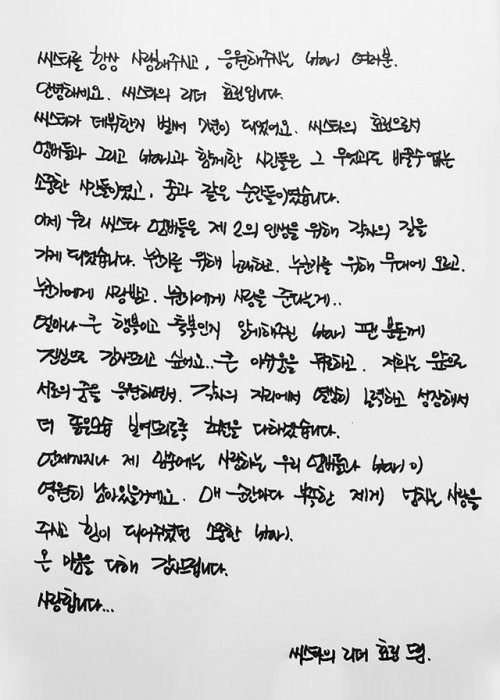 씨스타를 항상 사랑해주시고, 응원해주시는 star1 여러분.
안녕하세요. 씨스타의 리더 효린입니다.
씨스타가 데뷔한지 벌써 7년이 되었어요. 씨스타의 효린으로서
멤버들과 그리고 star1과 함께한 시간들은 그 무엇과도 바꿀수 없는
소중한 시간들이였고, 꿈과 같은 순간들이였습니다.
이제 우리 씨스타 멤버들은 제 2의 인생을 위해 각자의 길을
가게 되었습니다. 누군가를 위해 노래하고, 누군가를 위해 무대에 오르고,
누군가에게 사랑받고, 누군가에게 사랑을 준다는게..
얼마나 큰 행복이고 축복인지 알게해주신 star1 팬분들께
진심으로 감사드리고 싶어요.. 큰 아쉬움을 뒤로하고, 저희는 앞으로
서로의 꿈을 응원하면서, 각자의 자리에서 열심히 노력하고 성장해서
더 좋은모습 보여드리도록 최선을 다하겠습니다.
언제까지나 제 맘속에는 사랑하는 우리 멤버들과 star1이
영원히 남아있을거에요. 매 순간마다 부족한 제게 넘치는 사랑을
주시고 힘이 되어주셨던 소중한 star1.
온 마음을 다해 감사드립니다.
사랑합니다...
씨스타의 리더 효린 드림.